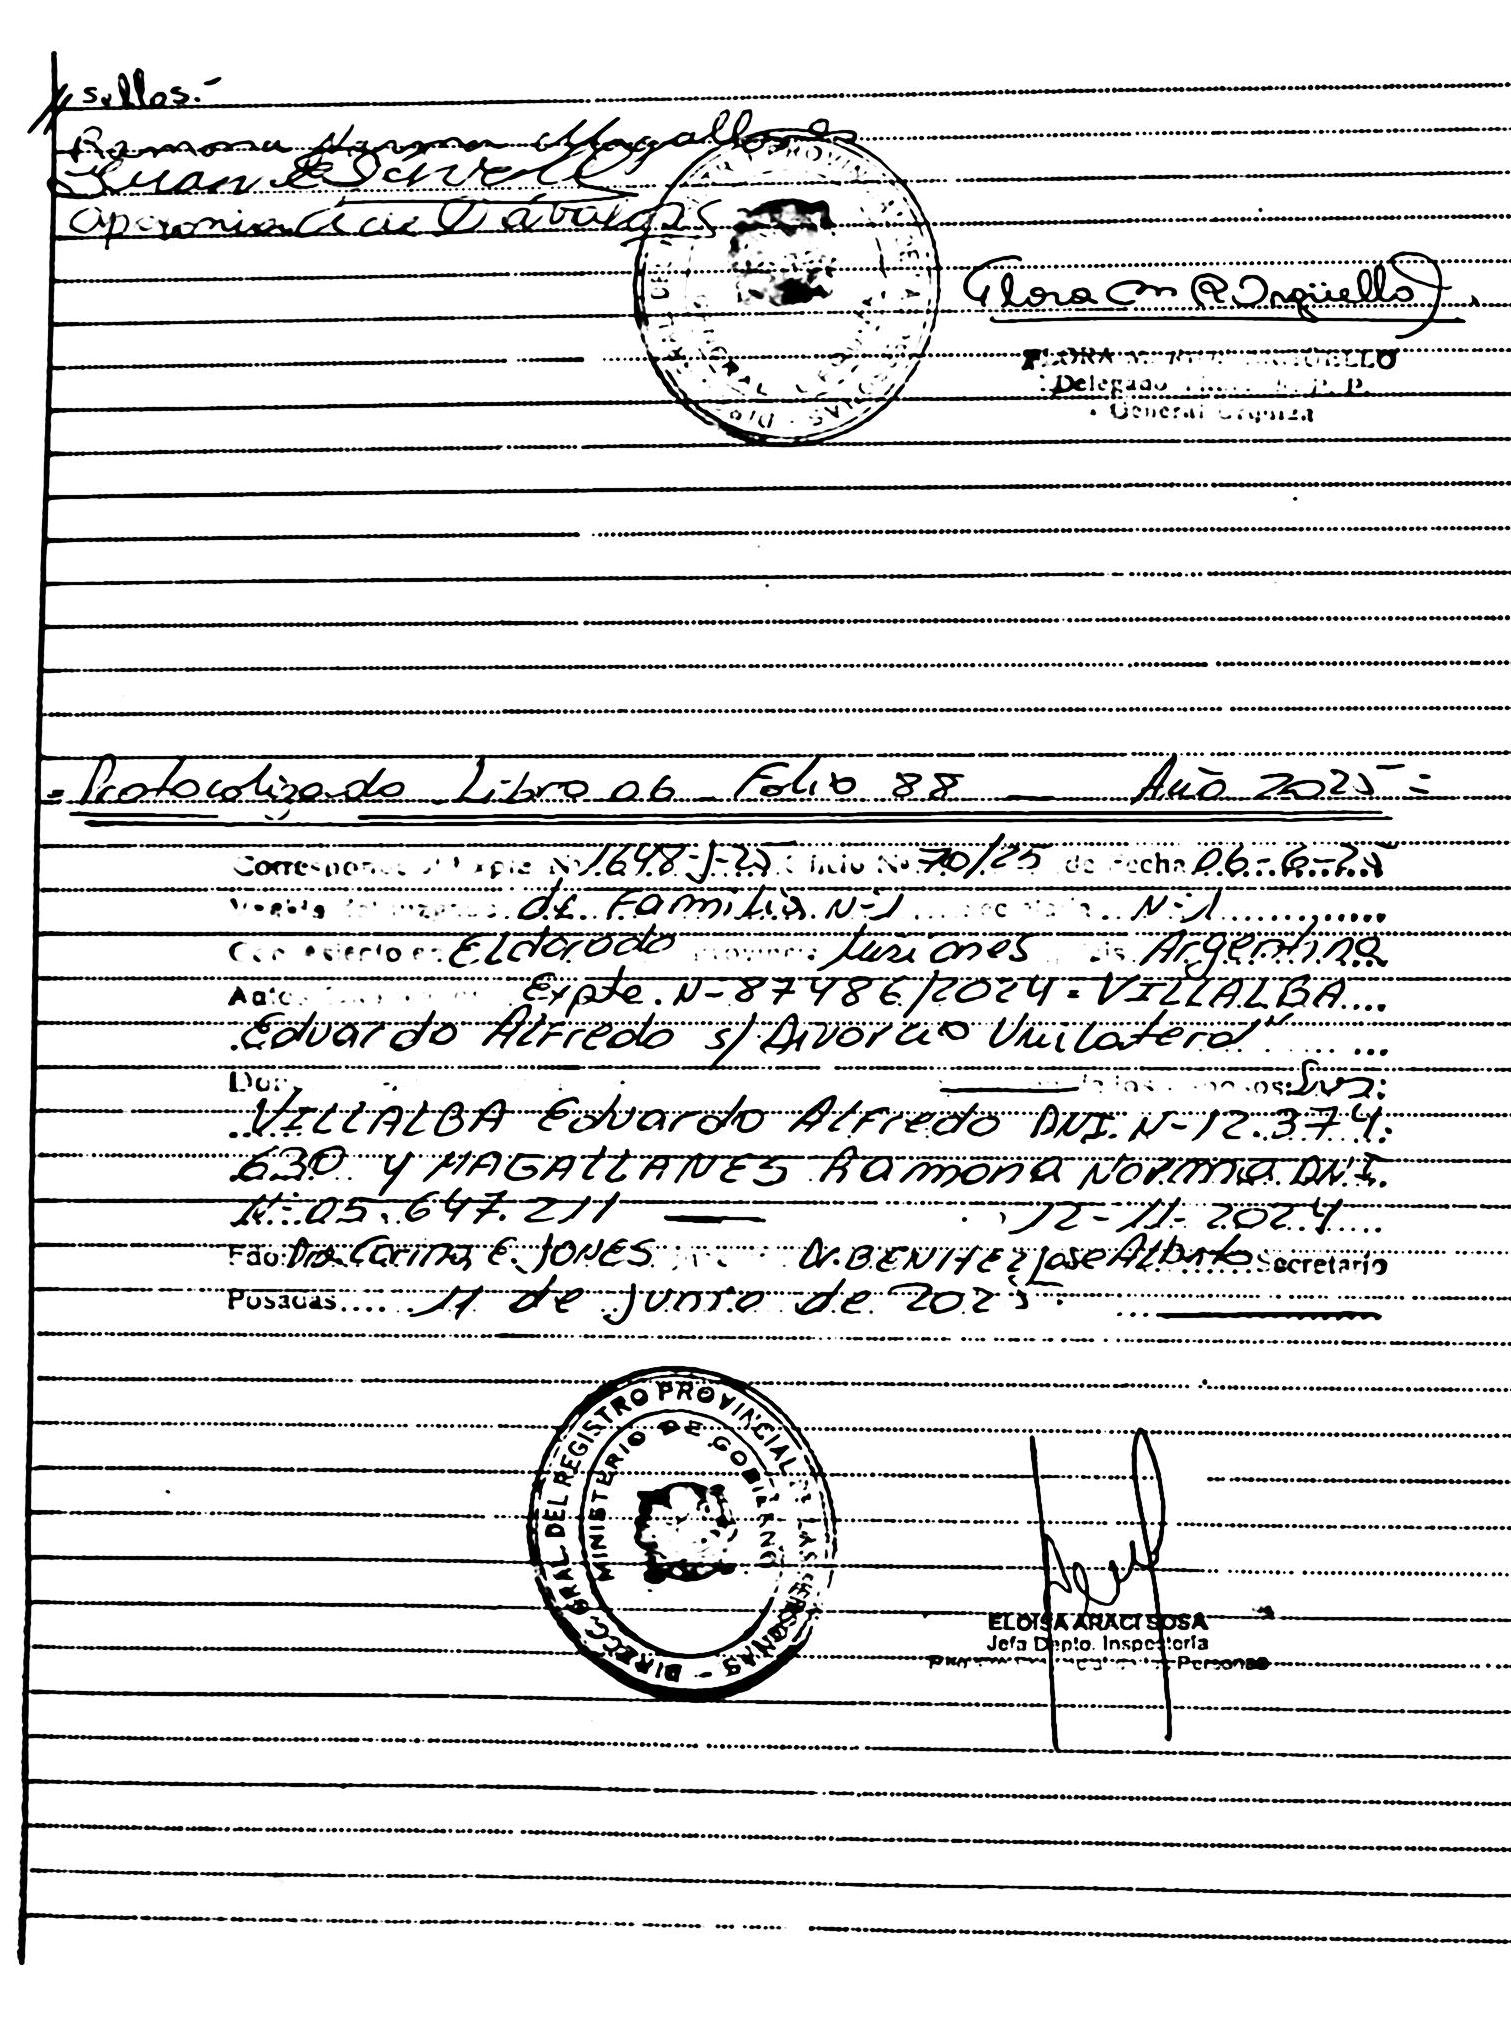 // sellos.-
Ramona Norma Magallanes
Juan
Dávalos
Flora M R Argüello
FLORA ARGUELLO
Delegado
General Urquiza
= Protocolizado Libro 06 - Folio 88 — Año 2025 =
Corresponde Expte Nº 1648-J-25 Oficio Nº 70/25 de Fecha 06-6-25
de Familia N-1 N-1
Con asiento en Eldorado Misiones Argentina
Autos Expte. N-87486/2024 - VILLALBA
Eduardo Alfredo s/ Divorcio Unilateral"
VILLALBA Eduardo Alfredo DNI. N-12.374.
630 y MAGALLANES Ramona Norma DNI.
N-05.647.211 — 12-11-2024
Fdo: Dra. Carina E. JONES Dr. BENITEZ Jose Alberto Secretario
Posadas 11 de Junio de 2025.
DIRECC. GRAL. DEL REGISTRO PROVINCIAL DE LAS PERSONAS -
MINISTERIO DE GOBIERNO
ELOISA ARACI SOSA
Jefa Depto. Inspectoría
Personas